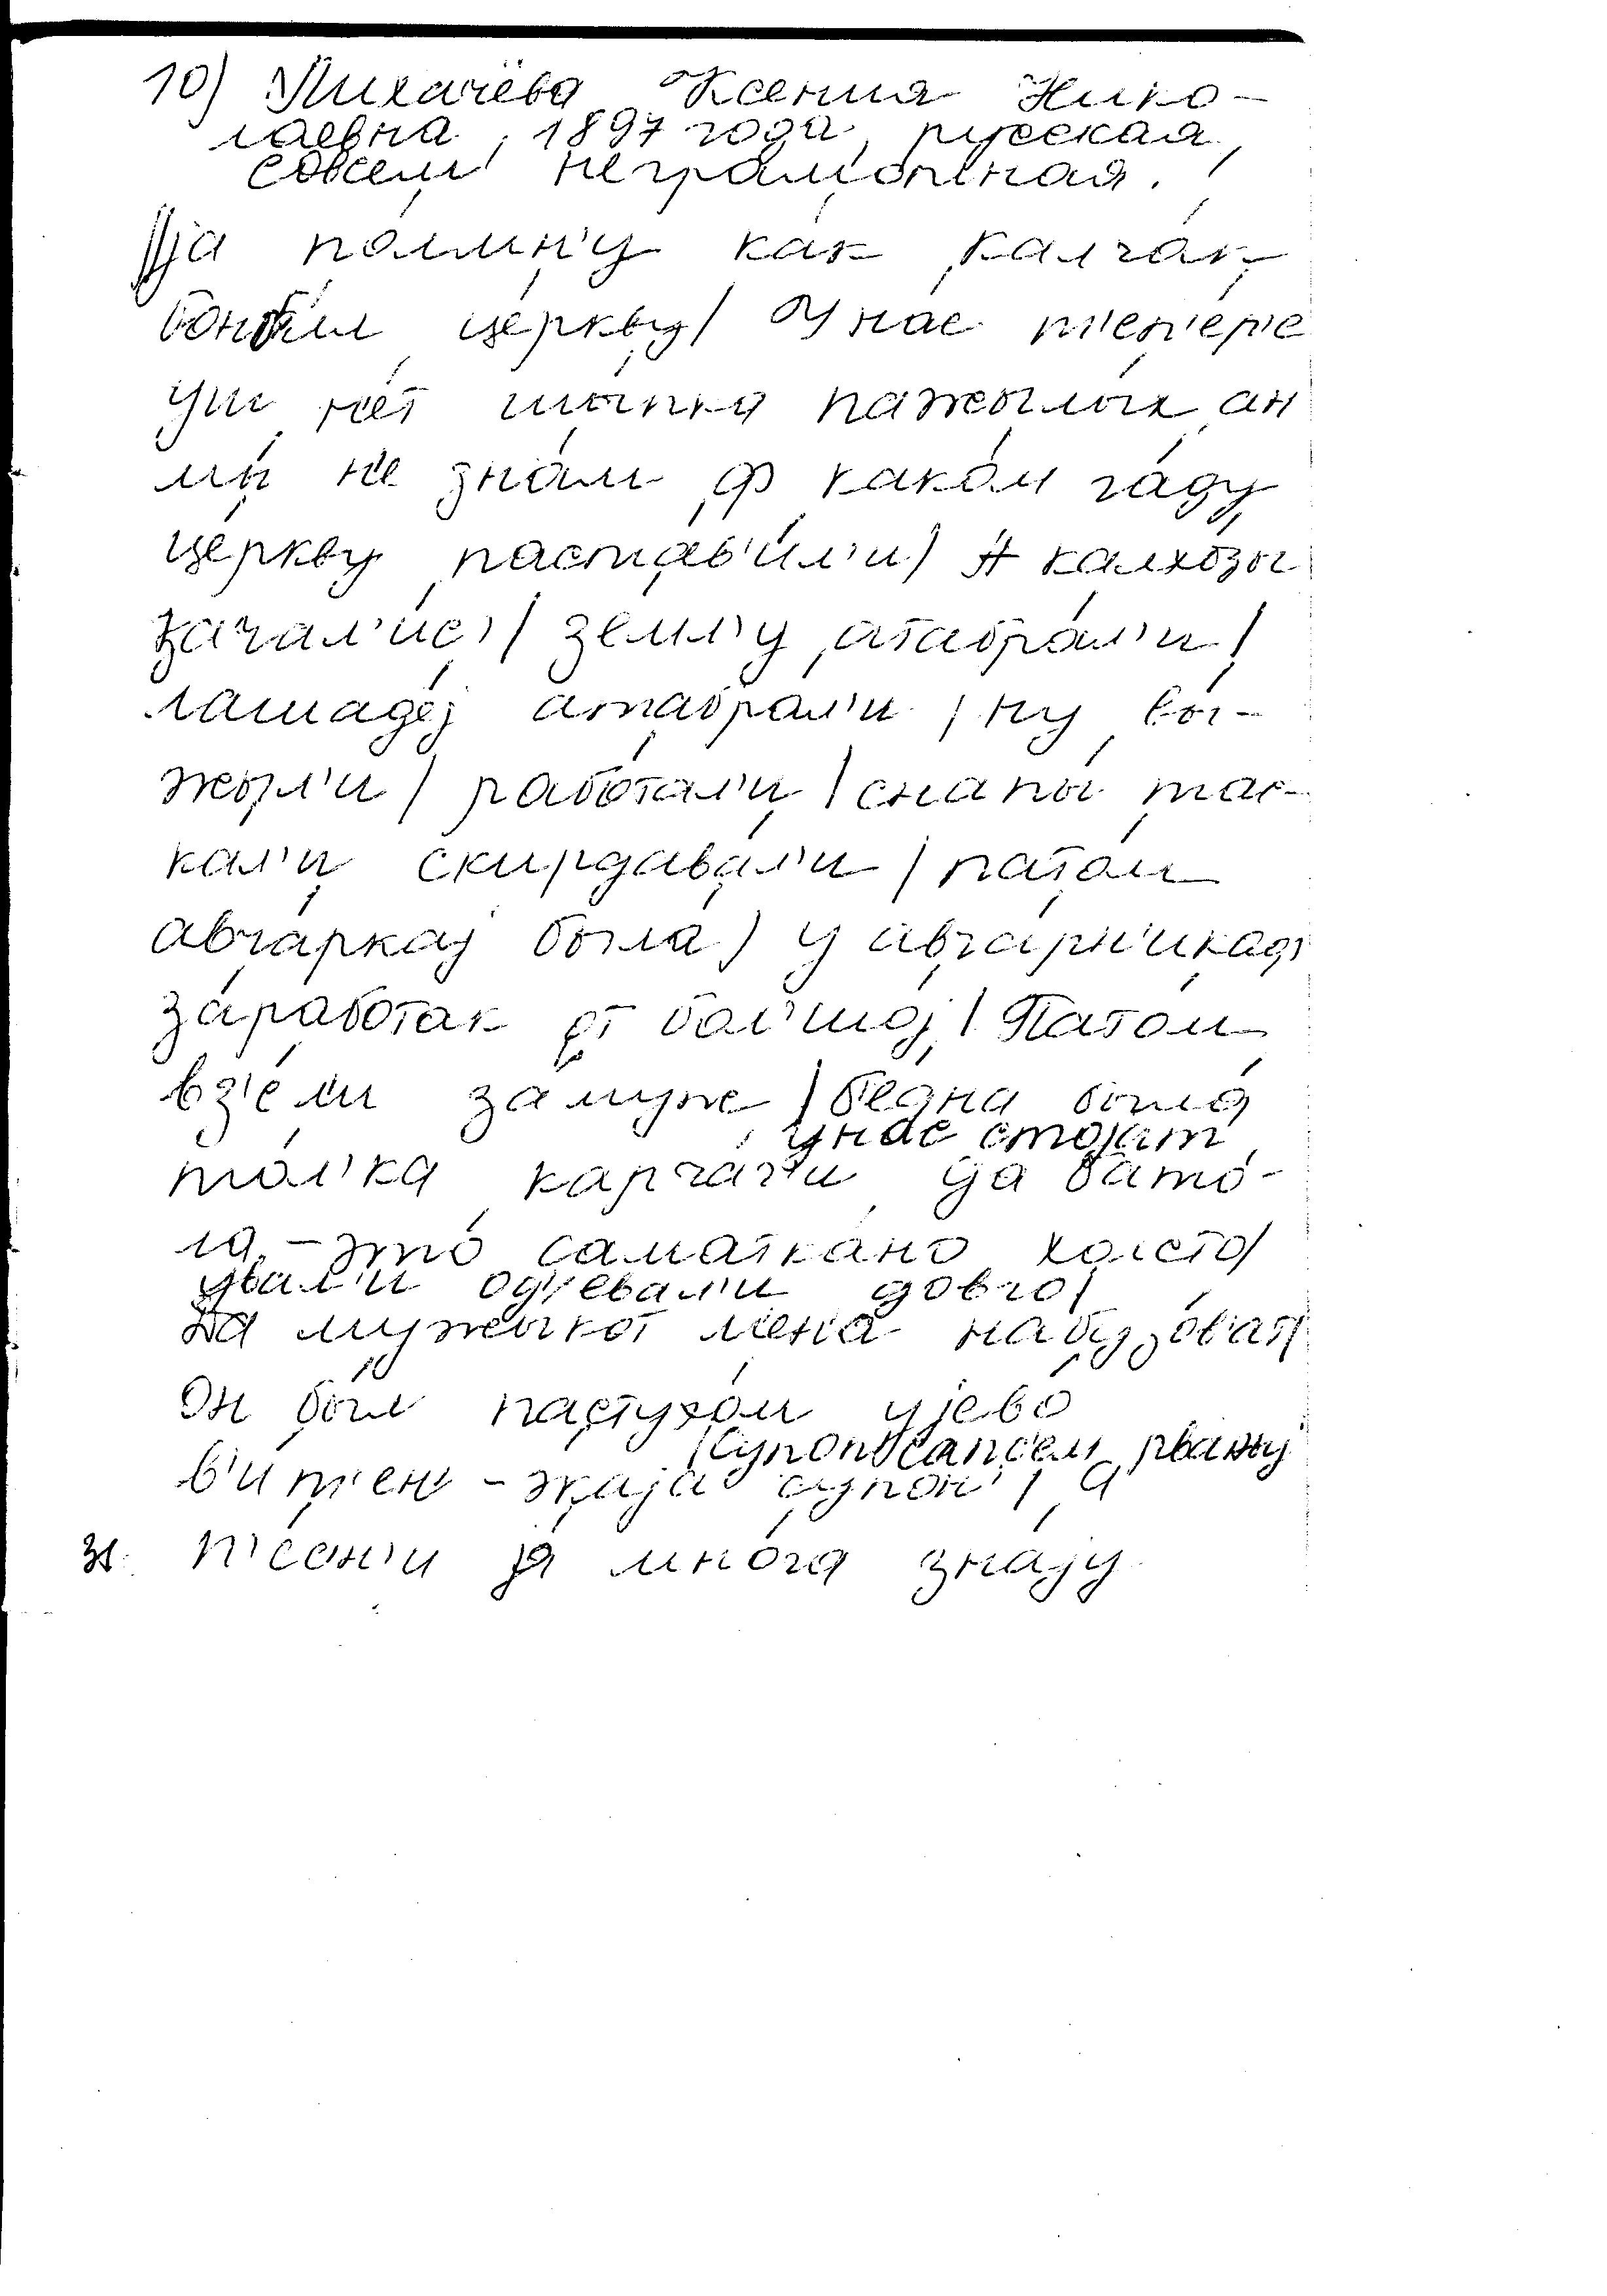 10) Лихачёва Ксения Нико-
лаевна, 1897 года, русская,
совсем неграмотная.
ја помн'у как калчак
бонбил церкву/ У нас т'еп'ер'е
уш нет шыпка пажылых ан
мы н'е знам ф каком гаду
церкву паставил'и/ А калхозы
зачал'ис'/ земл'у атабрал'и/
лашадеј атабрал'и/ ну вы-
жыл'и/ работал'и/ снапы тас-
кал'и скирдавал'и/ патом
авчаркај была/ у авчарн'икаф
заработак от бал'шој/ Патом
вз'ел'и замуже/ бедна была
у нас стојат
тол'ка карчаг'и да бато-
ла - это саматкано холсто/
ували од'евали довго/
Да мужыкот мена набузовал
Он был пастухом ујево
/супон' сапсем рвану
в'ит'ен - жаја супон'/ а
п'есен'и ја многа знају